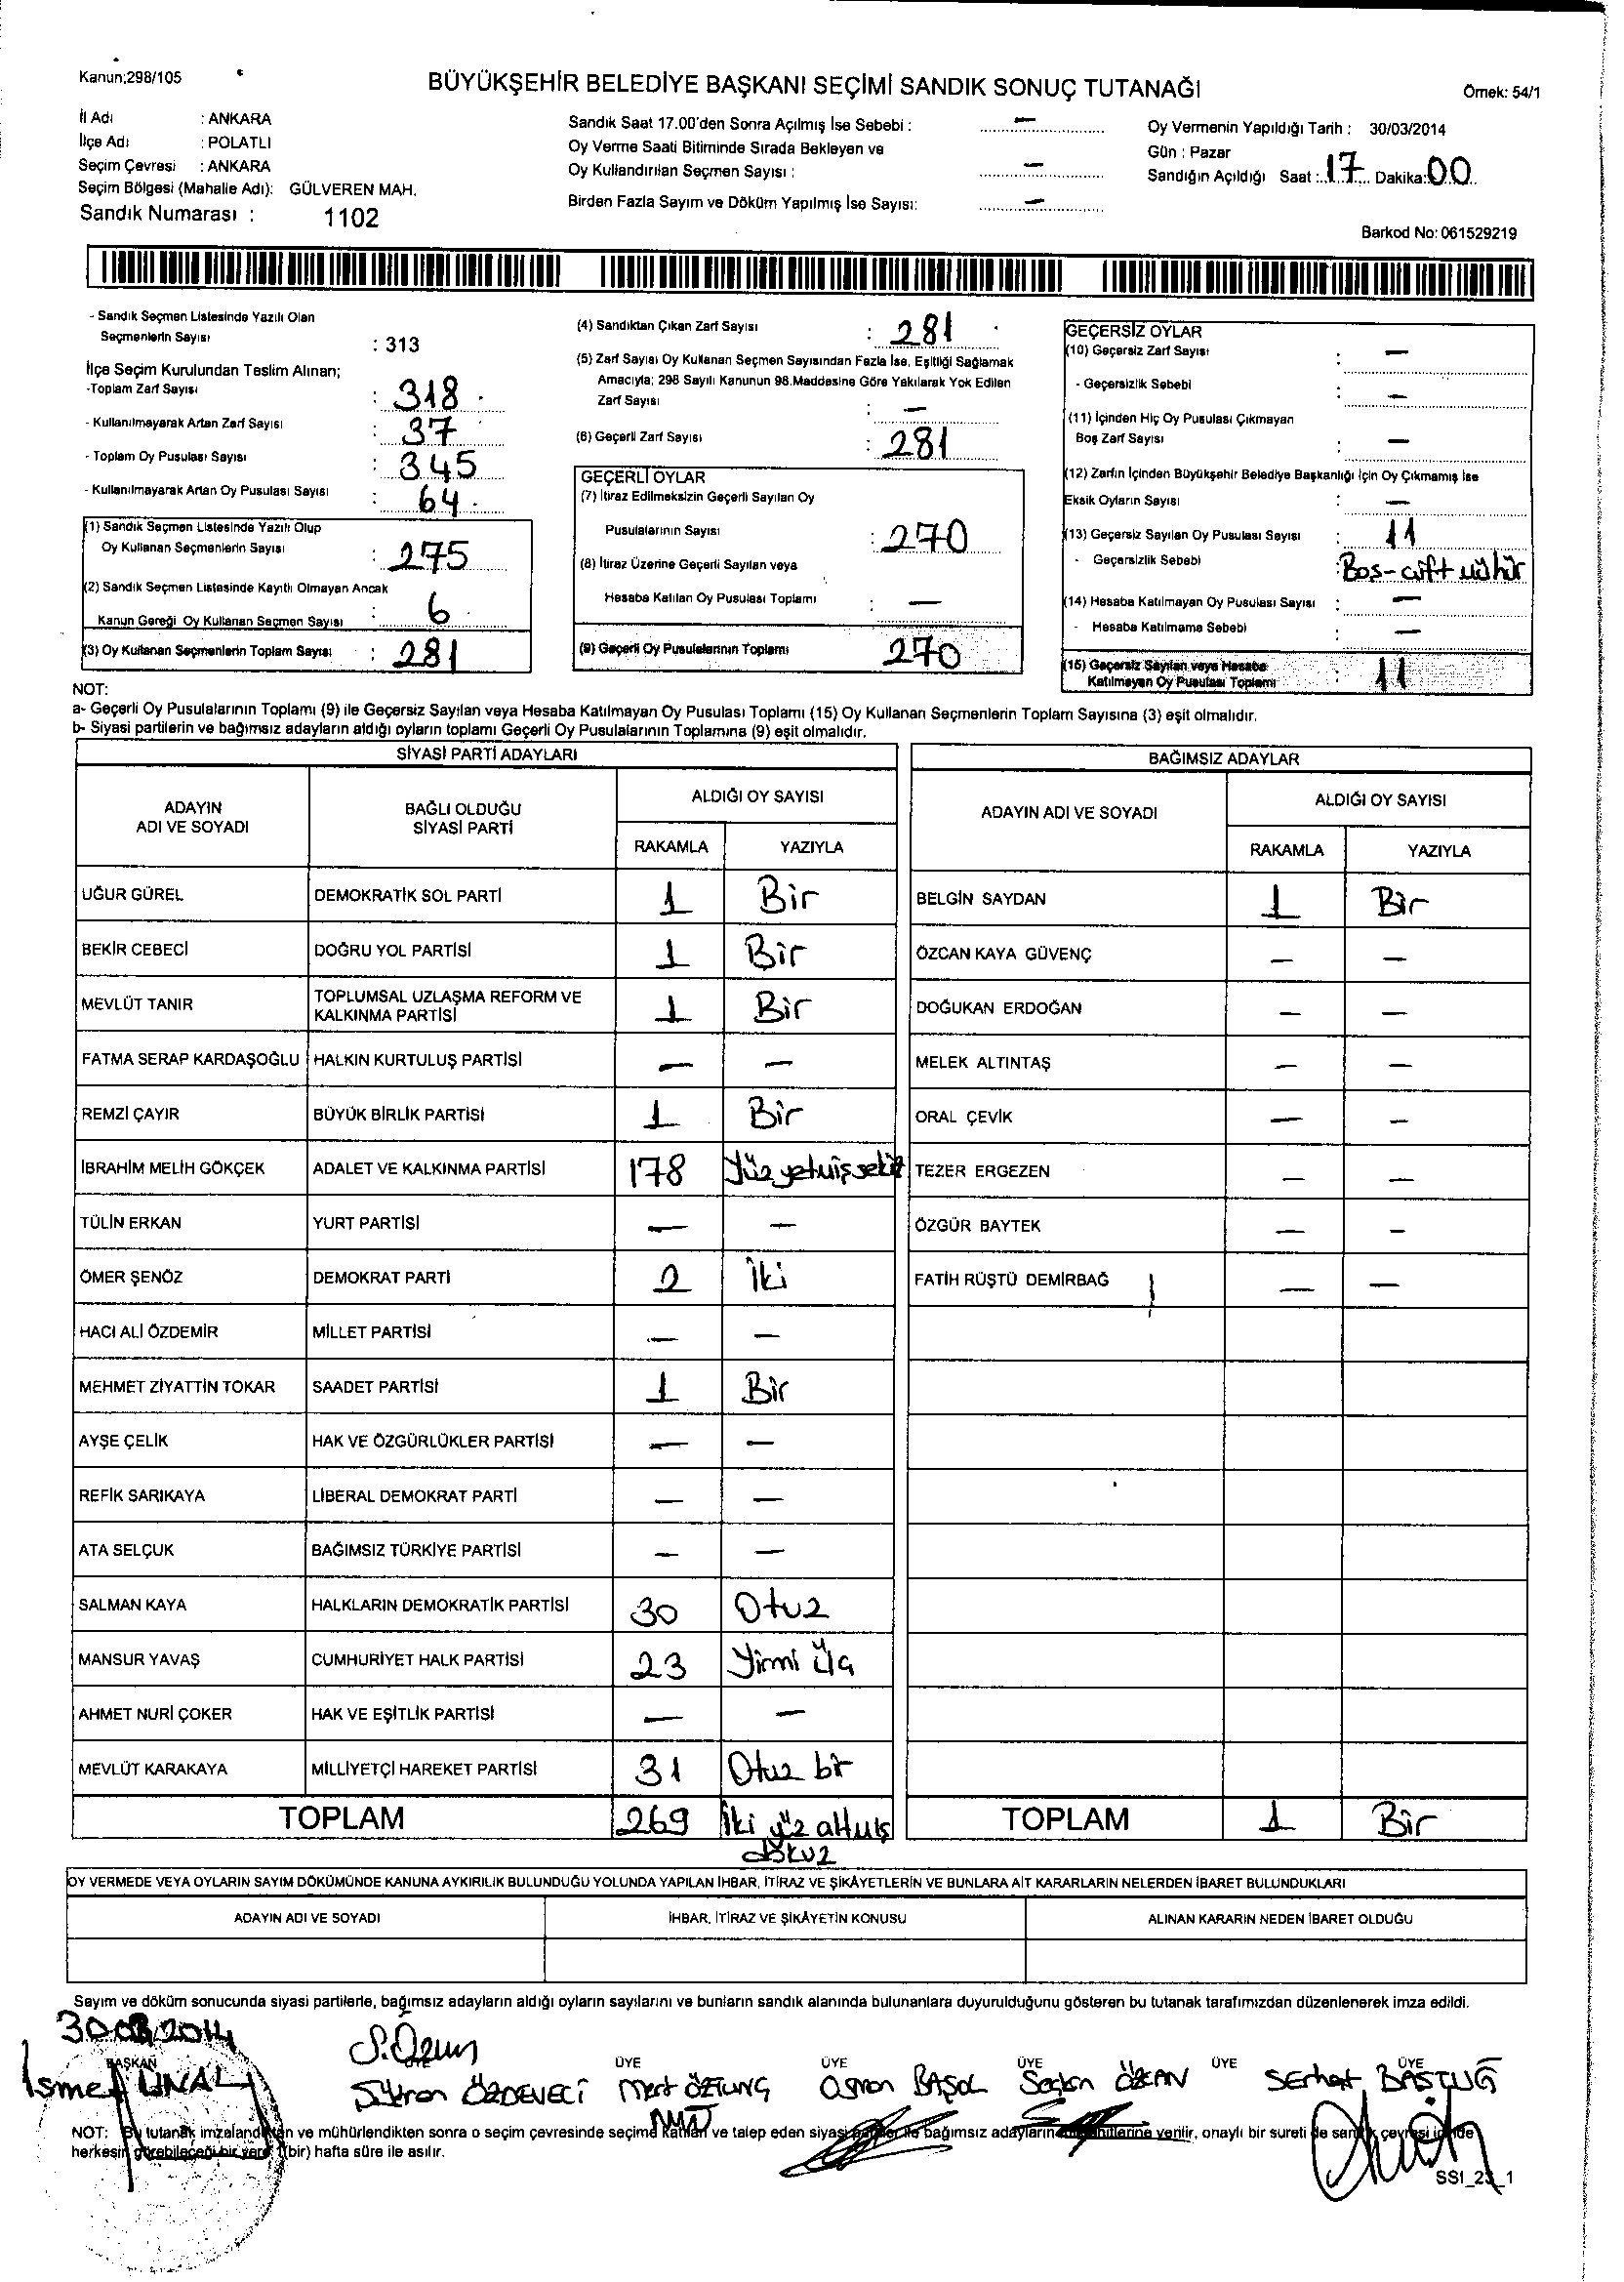 Kanun;298/105
BÜYÜKŞEHİR BELEDİYE BAŞKANI SEÇİMİ SANDIK SONUÇ TUTANAĞI
Örnek: 54/1
İl Adı : ANKARA
İlçe Adı : POLATLI
Seçim Çevresi : ANKARA
Seçim Bölgesi (Mahalle Adı): GÜLVEREN MAH.
Sandık Numarası : 1102
Sandık Saat 17.00'den Sonra Açılmış İse Sebebi : —
Oy Verme Saati Bitiminde Sırada Bekleyen ve
Oy Kullandırılan Seçmen Sayısı : —
Birden Fazla Sayım ve Döküm Yapılmış İse Sayısı: —
Oy Vermenin Yapıldığı Tarih : 30/03/2014
Gün : Pazar
Sandığın Açıldığı Saat :..17... Dakika:00..
Barkod No: 061529219
- Sandık Seçmen Listesinde Yazılı Olan
Seçmenlerin Sayısı : 313
İlçe Seçim Kurulundan Teslim Alınan;
-Toplam Zarf Sayısı : 318
- Kullanılmayarak Artan Zarf Sayısı : 37
- Toplam Oy Pusulası Sayısı : 345
- Kullanılmayarak Artan Oy Pusulası Sayısı : 64
(1) Sandık Seçmen Listesinde Yazılı Olup
Oy Kullanan Seçmenlerin Sayısı : 275
(2) Sandık Seçmen Listesinde Kayıtlı Olmayan Ancak
Kanun Gereği Oy Kullanan Seçmen Sayısı : 6
(3) Oy Kullanan Seçmenlerin Toplam Sayısı : 281
(4) Sandıktan Çıkan Zarf Sayısı : 281
(5) Zarf Sayısı Oy Kullanan Seçmen Sayısından Fazla İse, Eşitliği Sağlamak
Amacıyla; 298 Sayılı Kanunun 98.Maddesine Göre Yakılarak Yok Edilen
Zarf Sayısı : —
(6) Geçerli Zarf Sayısı : 281
GEÇERLİ OYLAR
(7) İtiraz Edilmeksizin Geçerli Sayılan Oy
Pusulalarının Sayısı : 270
(8) İtiraz Üzerine Geçerli Sayılan veya
Hesaba Katılan Oy Pusulası Toplamı : —
(9) Geçerli Oy Pusulalarının Toplamı 270
GEÇERSİZ OYLAR
(10) Geçersiz Zarf Sayısı : —
- Geçersizlik Sebebi : —
(11) İçinden Hiç Oy Pusulası Çıkmayan
Boş Zarf Sayısı : —
(12) Zarfın İçinden Büyükşehir Belediye Başkanlığı İçin Oy Çıkmamış İse
Eksik Oyların Sayısı : —
(13) Geçersiz Sayılan Oy Pusulası Sayısı : 11
- Geçersizlik Sebebi : Bos-çift mühür
(14) Hesaba Katılmayan Oy Pusulası Sayısı : —
- Hesaba Katılmama Sebebi : —
(15) Geçersiz Sayılan veya Hesaba
Katılmayan Oy Pusulası Toplamı : 11
NOT:
a- Geçerli Oy Pusulalarının Toplamı (9) ile Geçersiz Sayılan veya Hesaba Katılmayan Oy Pusulası Toplamı (15) Oy Kullanan Seçmenlerin Toplam Sayısına (3) eşit olmalıdır.
b- Siyasi partilerin ve bağımsız adayların aldığı oyların toplamı Geçerli Oy Pusulalarının Toplamına (9) eşit olmalıdır.
SİYASİ PARTİ ADAYLARI
ADAYIN ADI VE SOYADI BAĞLI OLDUĞU SİYASİ PARTİ ALDIĞI OY SAYISI
RAKAMLA YAZIYLA
UĞUR GÜREL DEMOKRATİK SOL PARTİ 1 Bir
BEKİR CEBECİ DOĞRU YOL PARTİSİ 1 Bir
MEVLÜT TANIR TOPLUMSAL UZLAŞMA REFORM VE KALKINMA PARTİSİ 1 Bir
FATMA SERAP KARDAŞOĞLU HALKIN KURTULUŞ PARTİSİ — —
REMZİ ÇAYIR BÜYÜK BİRLİK PARTİSİ 1 Bir
İBRAHİM MELİH GÖKÇEK ADALET VE KALKINMA PARTİSİ 178 Yüz yetmiş sekiz
TÜLİN ERKAN YURT PARTİSİ — —
ÖMER ŞENÖZ DEMOKRAT PARTİ 2 İki
HACI ALİ ÖZDEMİR MİLLET PARTİSİ — —
MEHMET ZİYATTİN TOKAR SAADET PARTİSİ 1 Bir
AYŞE ÇELİK HAK VE ÖZGÜRLÜKLER PARTİSİ — —
REFİK SARIKAYA LİBERAL DEMOKRAT PARTİ — —
ATA SELÇUK BAĞIMSIZ TÜRKİYE PARTİSİ — —
SALMAN KAYA HALKLARIN DEMOKRATİK PARTİSİ 30 Otuz
MANSUR YAVAŞ CUMHURİYET HALK PARTİSİ 23 Yirmi üç
AHMET NURİ ÇOKER HAK VE EŞİTLİK PARTİSİ — —
MEVLÜT KARAKAYA MİLLİYETÇİ HAREKET PARTİSİ 31 Otuz bir
TOPLAM 269 İki yüz altmış dokuz
BAĞIMSIZ ADAYLAR
ADAYIN ADI VE SOYADI ALDIĞI OY SAYISI
RAKAMLA YAZIYLA
BELGİN SAYDAN 1 Bir
ÖZCAN KAYA GÜVENÇ — —
DOĞUKAN ERDOĞAN — —
MELEK ALTINTAŞ — —
ORAL ÇEVİK — —
TEZER ERGEZEN — —
ÖZGÜR BAYTEK — —
FATİH RÜŞTÜ DEMİRBAĞ — —
TOPLAM 1 Bir
OY VERMEDE VEYA OYLARIN SAYIM DÖKÜMÜNDE KANUNA AYKIRILIK BULUNDUĞU YOLUNDA YAPILAN İHBAR, İTİRAZ VE ŞİKÂYETLERİN VE BUNLARA AİT KARARLARIN NELERDEN İBARET BULUNDUKLARI
ADAYIN ADI VE SOYADI İHBAR, İTİRAZ VE ŞİKÂYETİN KONUSU ALINAN KARARIN NEDEN İBARET OLDUĞU
Sayım ve döküm sonucunda siyasi partilerle, bağımsız adayların aldığı oyların sayılarını ve bunların sandık alanında bulunanlara duyurulduğunu gösteren bu tutanak tarafımızdan düzenlenerek imza edildi.
30.03.2014
BAŞKAN ÜYE ÜYE ÜYE ÜYE ÜYE
İsmet ÜNAL ÖZDEVECİ Mert ÖZTUNÇ Osman BAŞOL Seçkin ÖZKAN Serhat BAŞTUĞ
NOT: Bu tutanak imzalandıktan ve mühürlendikten sonra o seçim çevresinde seçime katılan ve talep eden siyasi partiler ile bağımsız adayların verilir, onaylı bir sureti de sandık çevresi içinde
herkesin görebileceği bir yere 1(bir) hafta süre ile asılır.
SSI_23_1